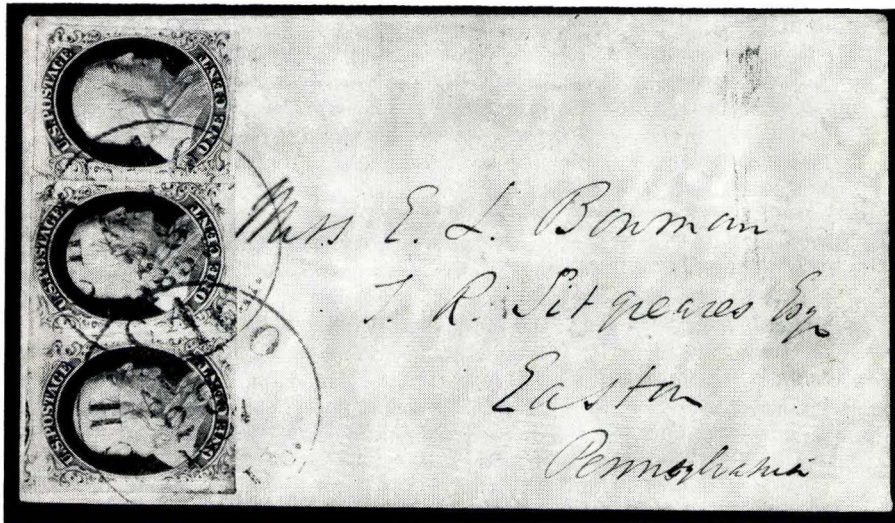 U.S. POSTAGE
ONE CENT
U.S. POSTAGE
ONE CENT
U.S. POSTAGE
ONE CENT
Miss E. L. Bowman
T. R. Sitgreaves Esqr
Easton
Pennsylvania